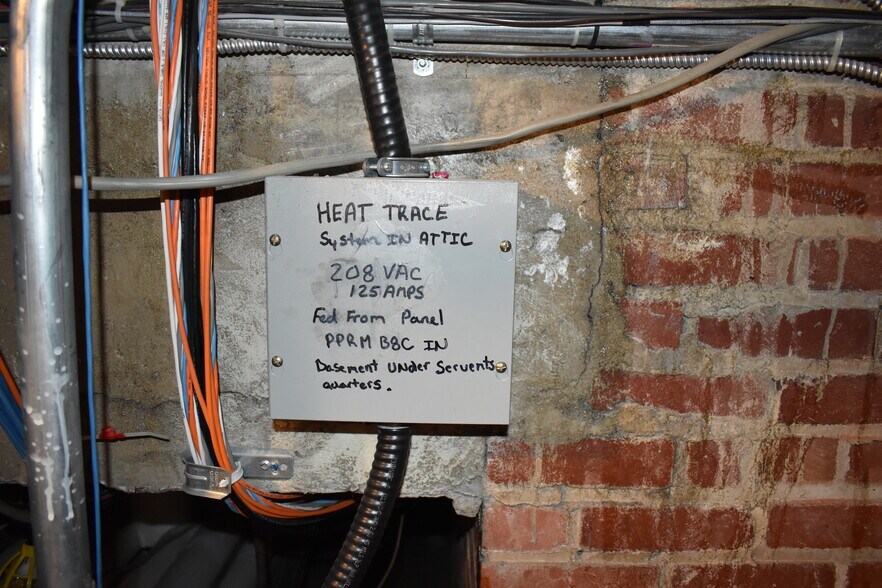 HEAT TRACE
System IN ATTIC
208 VAC
125 AMPS
Fed From Panel
PPRM B8C IN
Basement UNder Servents
quarters.